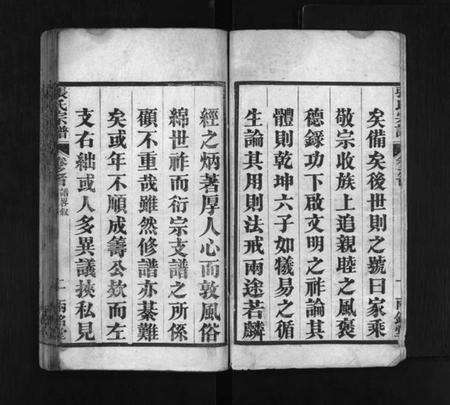 矣備矣後世則之號曰家乘
敬宗收族上追親睦之風褒
德錄功下啟文明之祚論其
體則乾坤六子如犧易之循
生論其用則法戒兩途若麟
經之炳著厚人心而敦風俗
綿世祚而衍宗支譜之所係
顧不重哉雖然修譜亦綦難
矣或年不順成籌公欵而左
支右絀或人多異議挾私見
張氏宗譜
卷之首
一